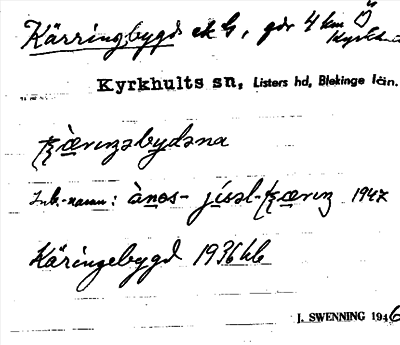 Kärringbygd ek h, gdr 4 km Ö
Kyrkhu
Kyrkhults sn, Listers hd, Blekinge län.
tʂæ̀rɪŋəbydəna
Inb.-namn: ànəs- jísəl-tʂærɪŋ 1947
Käringebygd 1936 hb
J. SWENNING 1946